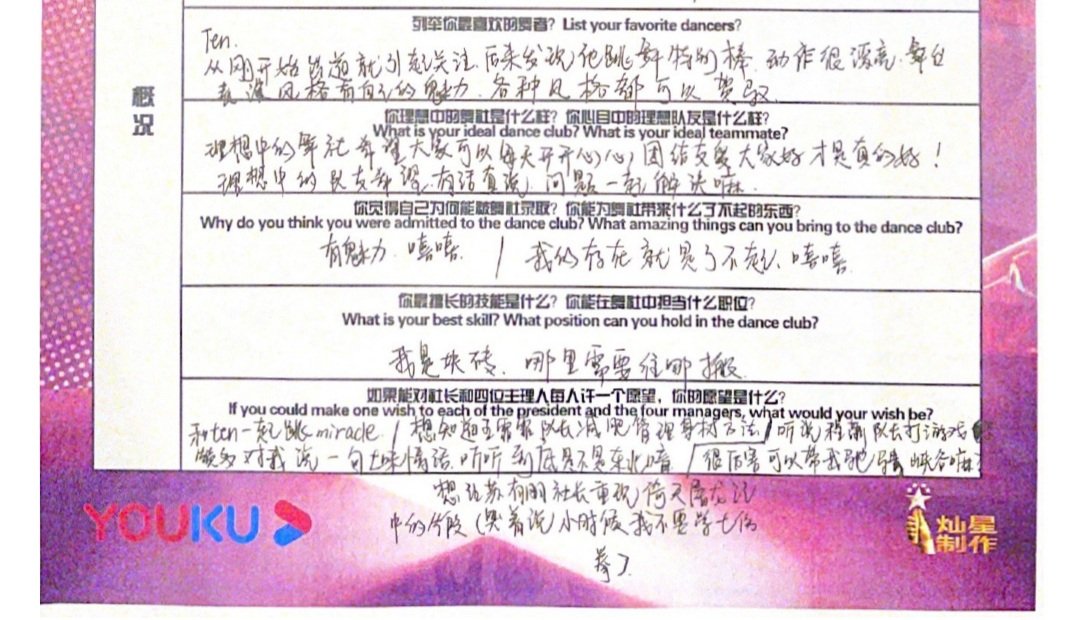 列举你最喜欢的舞者？ List your favorite dancers?
Ten.
从刚开始出道就引起关注 后来发现他跳舞特别棒. 动作很漂亮. 舞台
表演风格有自己的魅力. 各种风格都可以驾驭.
概况
你理想中的舞社是什么样？ 你心目中的理想队友是什么样？
What is your ideal dance club? What is your ideal teammate?
理想中的舞社希望大家可以每天开开心心 团结友爱大家好才是真的好！
理想中的队友 有话直说. 问题一起解决嘛.
你觉得自己为何能被舞社录取？ 你能为舞社带来什么了不起的东西？
Why do you think you were admitted to the dance club? What amazing things can you bring to the dance club?
有魅力. 嘻嘻. / 我的存在就是了不起、嘻嘻.
你最擅长的技能是什么？ 你能在舞社中担当什么职位？
What is your best skill? What position can you hold in the dance club?
我是块砖、哪里需要往哪搬.
如果能对社长和四位主理人每人许一个愿望，你的愿望是什么？
If you could make one wish to each of the president and the four managers, what would your wish be?
和ten一起跳miracle. / 想知道王霏霏队长减肥管理身材方法. / 听说程潇队长打游戏
对我说一句土味情话. 听听到底是不是东北嗑. / 很厉害可以带我驰骋峡谷嘛？
想让苏有朋社长重现倚天屠龙记
中的片段 (哭着说) 小时候我不要学七伤
拳了
YOUKU
灿星
制作